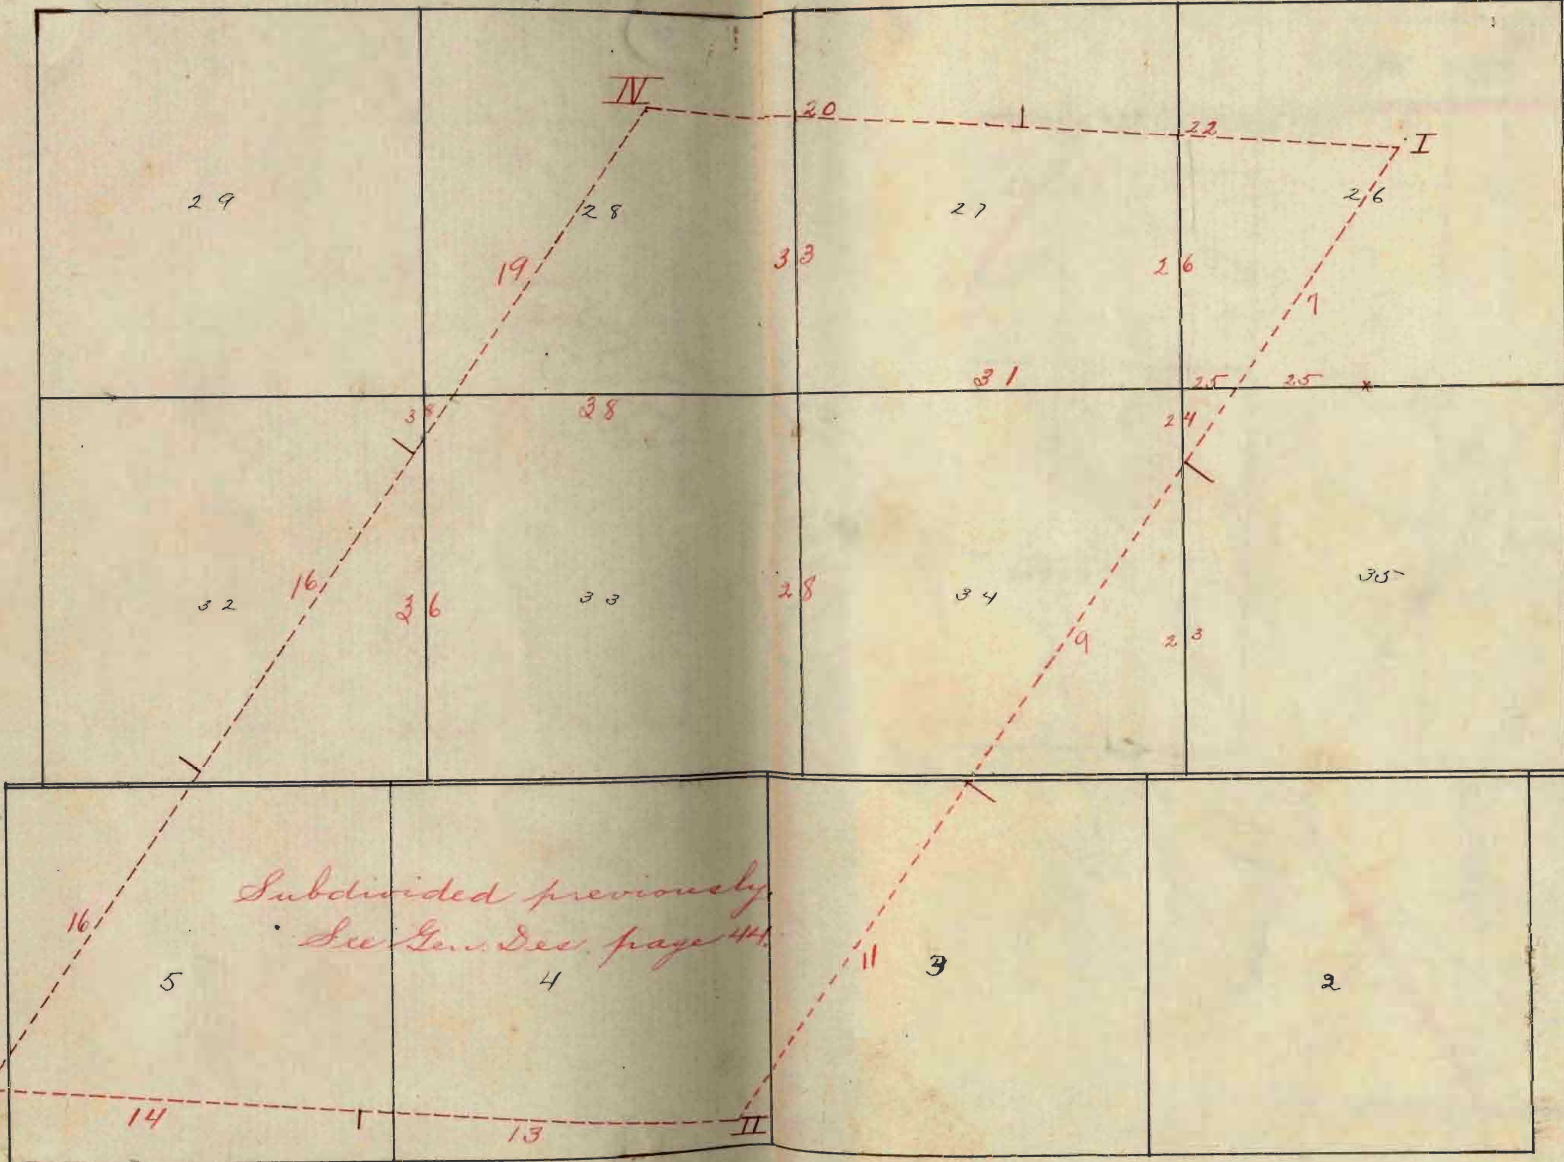 IV
20
22
I
29
28
27
26
19
33
26
7
31
25
25
x
38
28
24
32
16
36
33
28
34
9
23
35
Subdivided previously.
See Gen. Des. page 44.
16
5
4
11
3
2
14
13
II